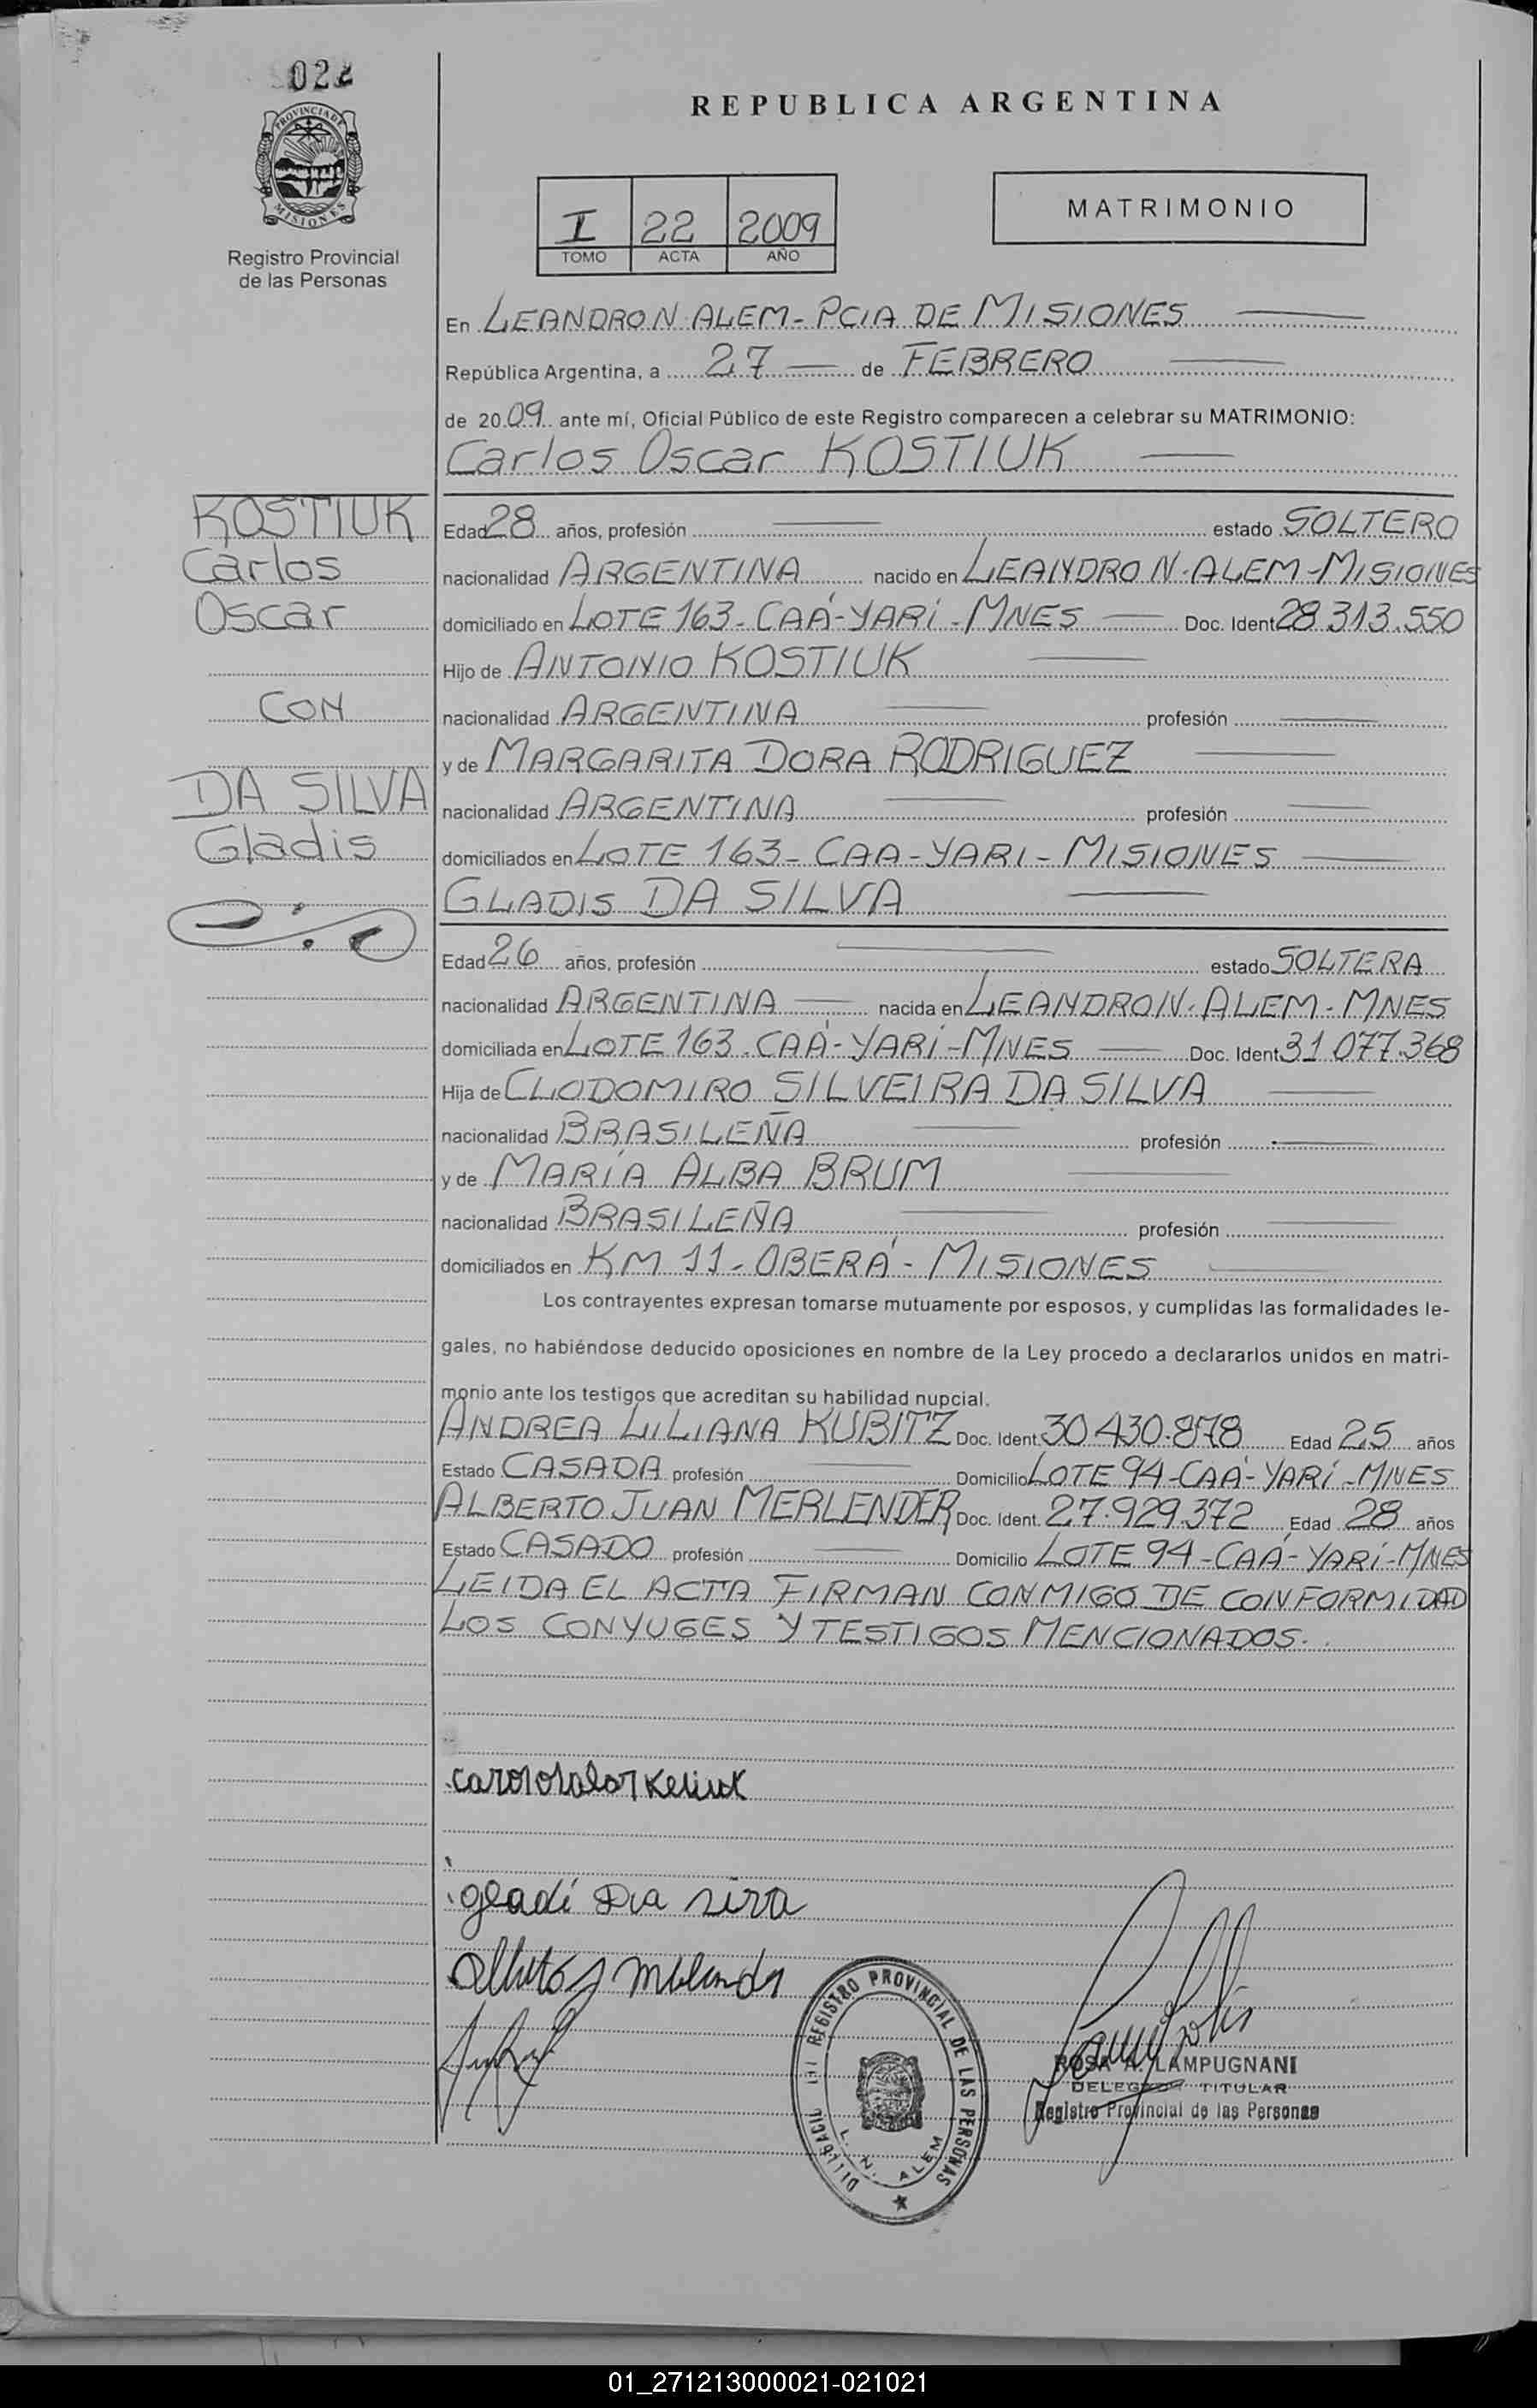 022
PROVINCIA DE
MISIONES
Registro Provincial
de las Personas
REPUBLICA ARGENTINA
I 22 2009
TOMO ACTA AÑO
MATRIMONIO
En LEANDRO N. ALEM - PCIA DE MISIONES
República Argentina, a 27 de FEBRERO
de 2009 ante mí, Oficial Público de este Registro comparecen a celebrar su MATRIMONIO:
Carlos Oscar KOSTIUK
KOSTIUK
Carlos
Oscar
CON
DA SILVA
Gladis
Edad 28 años, profesión estado SOLTERO
nacionalidad ARGENTINA nacido en LEANDRO N. ALEM - MISIONES
domiciliado en LOTE 163 - CAÁ-YARÍ - MNES Doc. Ident 28.313.550
Hijo de ANTONIO KOSTIUK
nacionalidad ARGENTINA profesión
y de MARGARITA DORA RODRIGUEZ
nacionalidad ARGENTINA profesión
domiciliados en LOTE 163 - CAA-YARI - MISIONES
GLADIS DA SILVA
Edad 26 años, profesión estado SOLTERA
nacionalidad ARGENTINA nacida en LEANDRO N. ALEM - MNES
domiciliada en LOTE 163 - CAÁ-YARÍ - MNES Doc. Ident 31.077.368
Hija de CLODOMIRO SILVEIRA DA SILVA
nacionalidad BRASILEÑA profesión
y de MARÍA ALBA BRUM
nacionalidad BRASILEÑA profesión
domiciliados en KM 11 - OBERÁ - MISIONES
Los contrayentes expresan tomarse mutuamente por esposos, y cumplidas las formalidades le-
gales, no habiéndose deducido oposiciones en nombre de la Ley procedo a declararlos unidos en matri-
monio ante los testigos que acreditan su habilidad nupcial.
ANDREA LILIANA KUBITZ Doc. Ident. 30.430.878 Edad 25 años
Estado CASADA profesión Domicilio LOTE 94 - CAÁ-YARÍ - MNES
ALBERTO JUAN MERLENDER Doc. Ident. 27.929.372 Edad 28 años
Estado CASADO profesión Domicilio LOTE 94 - CAÁ-YARÍ - MNES
LEIDA EL ACTA FIRMAN CONMIGO DE CONFORMIDAD
LOS CONYUGES Y TESTIGOS MENCIONADOS.
REGISTRO PROVINCIAL DE LAS PERSONAS
L. N. ALEM
ROSA A. LAMPUGNANI
DELEGADA TITULAR
Registro Provincial de las Personas
01_271213000021-021021